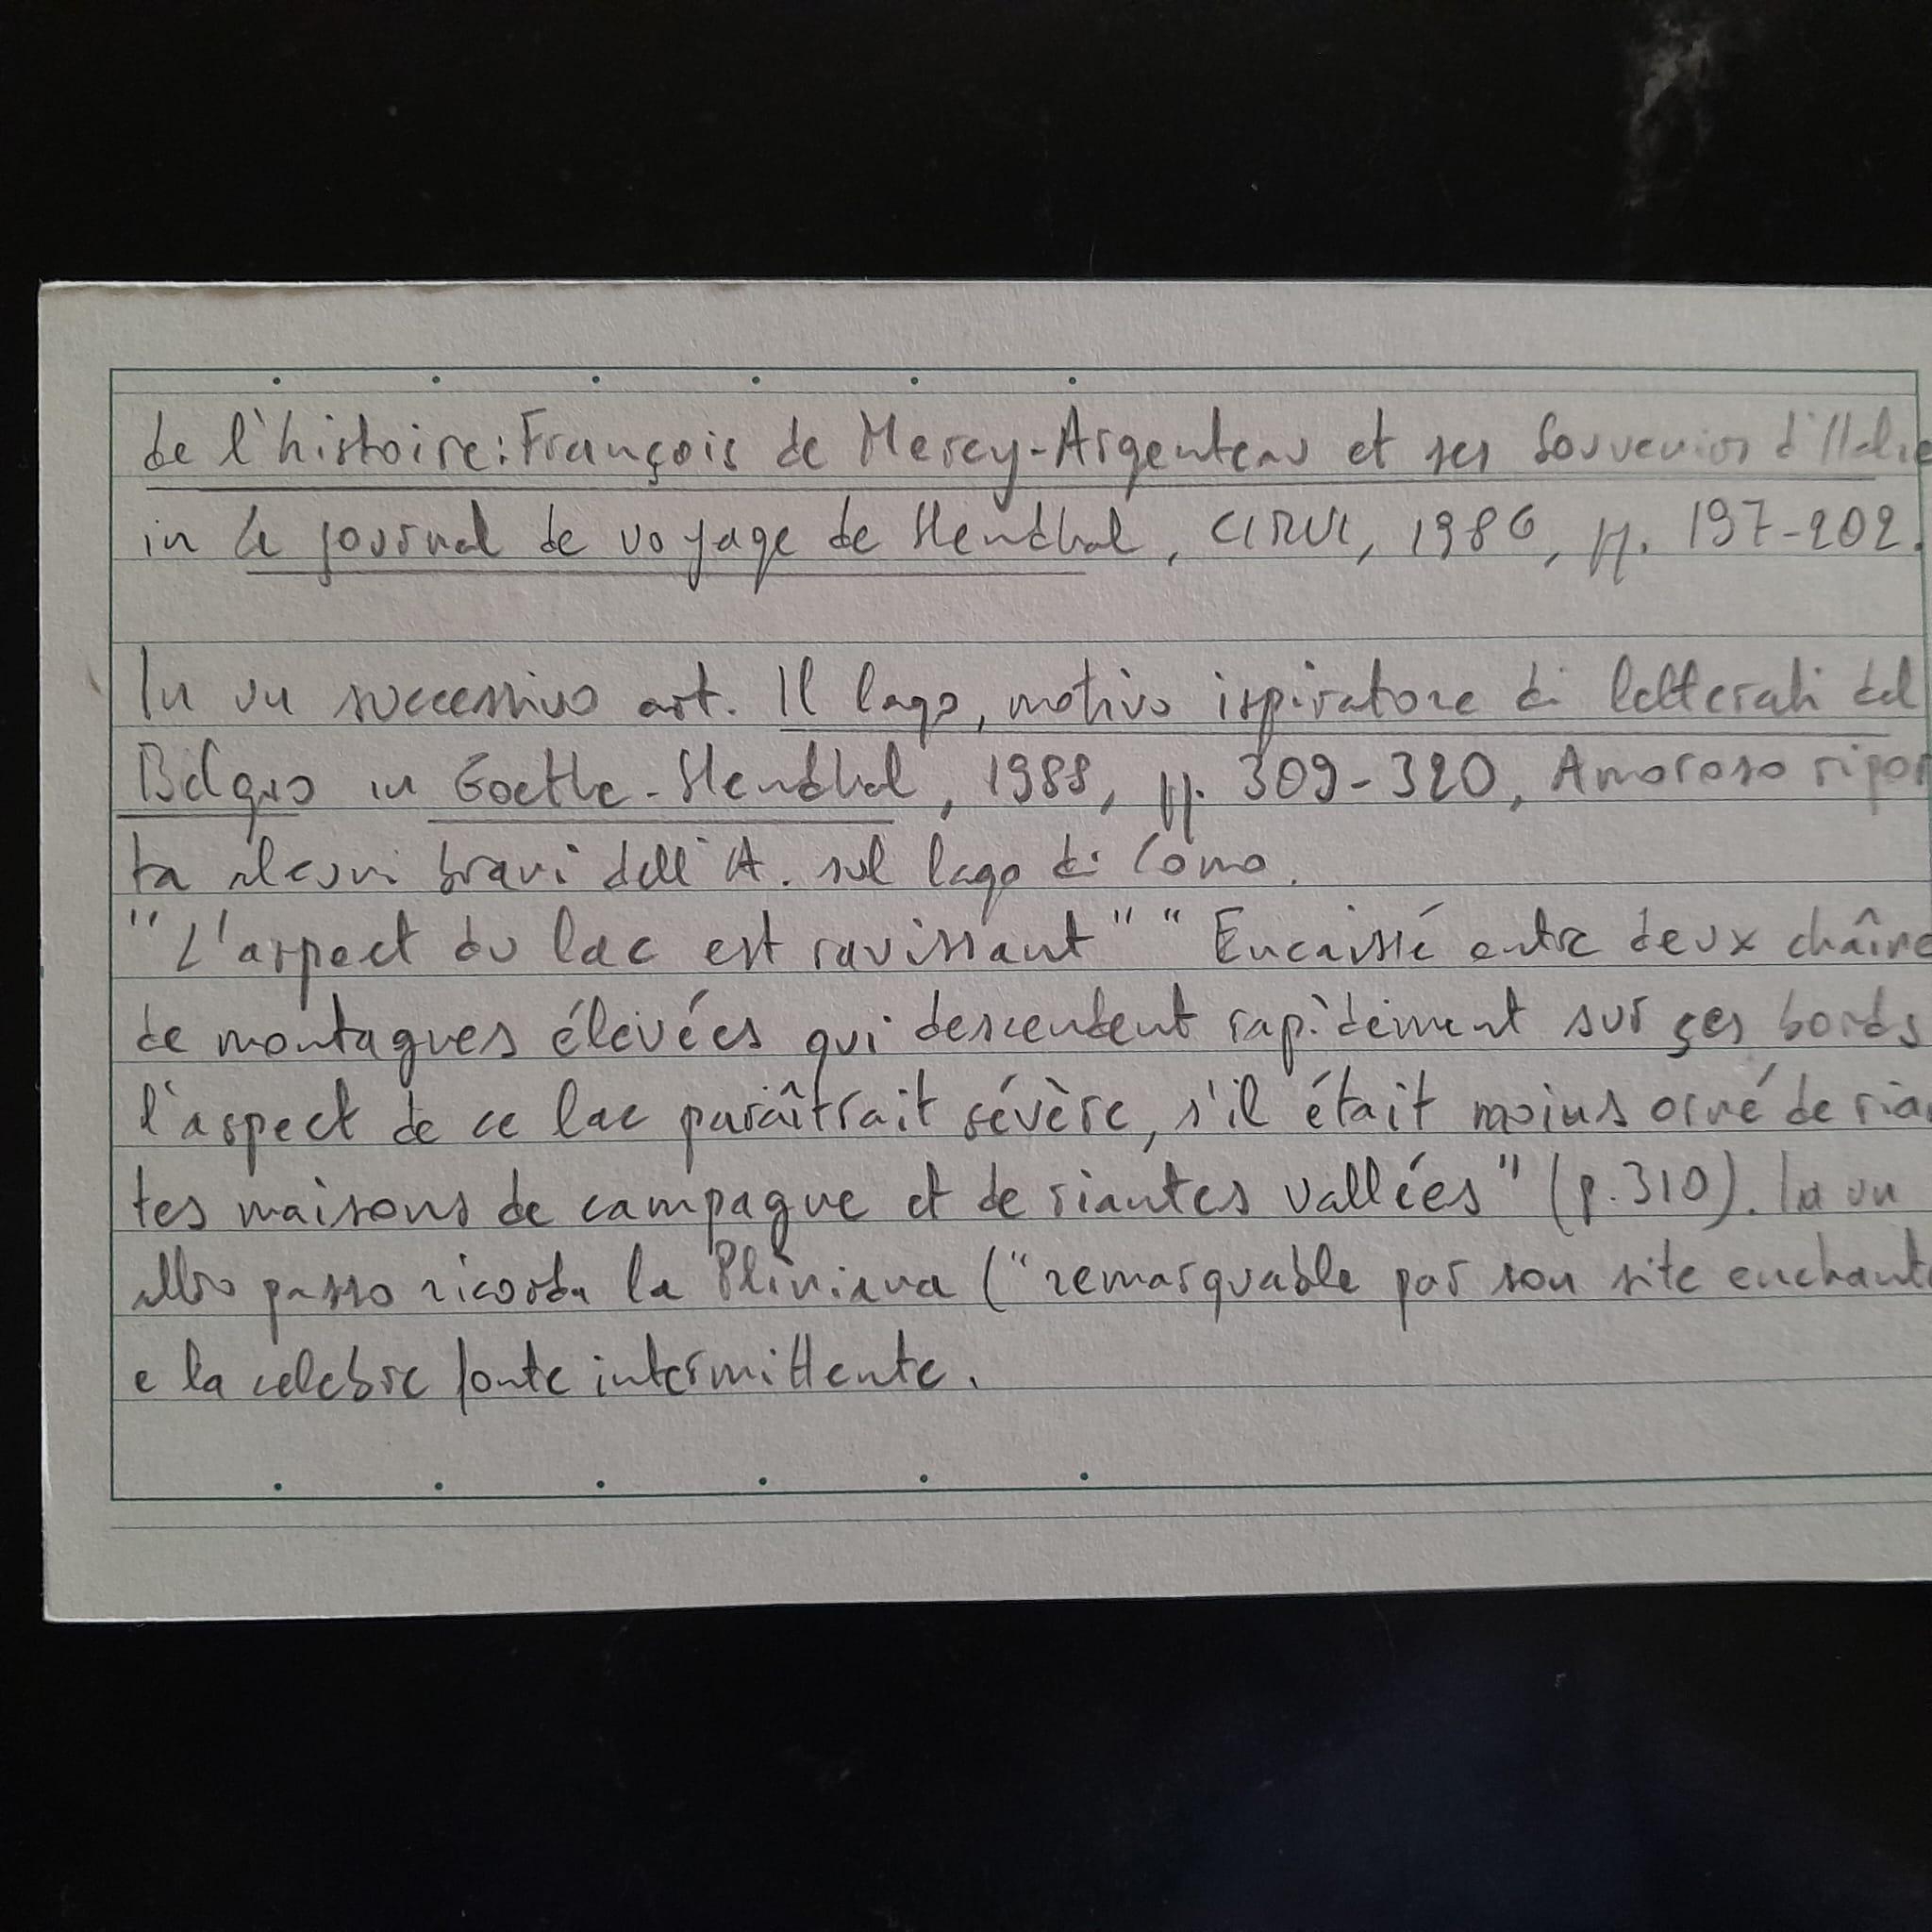 de l'histoire: François de Mercy-Argenteau et ses Souvenirs d'Italie
in Le journal de voyage de Stendhal, CIRVI, 1986, pp. 197-202.
In un successivo art. Il lago, motivo ispiratore di letterati del
Belgio in Goethe-Stendhal, 1988, pp. 309-320, Amoroso ripor
ta alcuni brani dell'A. sul lago di Como.
"L'aspect du lac est ravissant" "Encaissé entre deux chaîne
de montagnes élevées qui descendent rapidement sur ses bords
l'aspect de ce lac paraîtrait sévère, s'il était moins orné de rian
tes maisons de campagne et de riantes vallées" (p. 310). In un
altro passo ricorda la Pliniana ("remarquable par son site enchant
e la celebre fonte intermittente.